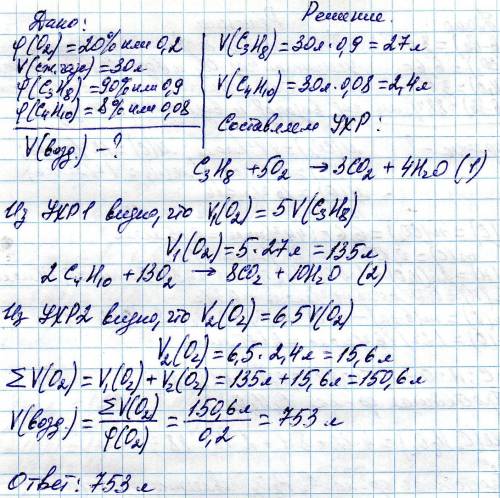 Дано:
φ(O₂) = 20% или 0,2
V(сж. газа) = 30л
φ(C₃H₈) = 90% или 0,9
φ(C₄H₁₀) = 8% или 0,08
V(возд.) - ?
Решение.
V(C₃H₈) = 30л · 0,9 = 27л
V(C₄H₁₀) = 30л · 0,08 = 2,4л
Составляем УХР:
C₃H₈ + 5O₂ → 3CO₂ + 4H₂O (1)
Из УХР1 видно, что V₁(O₂) = 5V(C₃H₈)
V₁(O₂) = 5 · 27л = 135л
2C₄H₁₀ + 13O₂ → 8CO₂ + 10H₂O (2)
Из УХР2 видно, что V₂(O₂) = 6,5V(O₂)
V₂(O₂) = 6,5 · 2,4л = 15,6л
ΣV(O₂) = V₁(O₂) + V₂(O₂) = 135л + 15,6л = 150,6л
V(возд.) = ΣV(O₂)/φ(O₂) = 150,6л/0,2 = 753 л
Ответ: 753 л